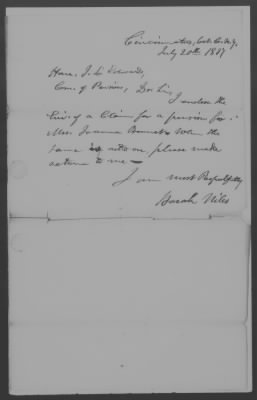 Cincinnatus, Cort. Co. N.Y.
July 20th 18
Hon. J. L. Edwards,
Com. of Pensions, Dr Sir,
I enclose the
Evi. of a Claim for a pension for
Mrs. Joanna When the
same is acted on, please make
return to me —
I am most Respectfully
Barak Niles